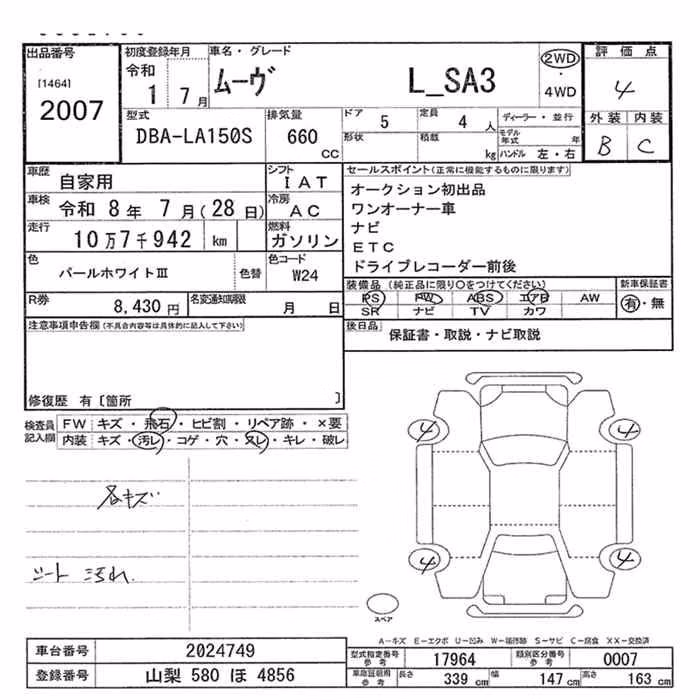 出品番号 初度登録年月 車名・グレード 評価点
[1464] 令和 ムーヴ L_SA3 2WD ・ 4WD 4
2007 1 7月 外装 内装
型式 排気量 ドア 5 定員 4人 ディーラー・並行 B C
DBA-LA150S 660 CC 形状 積載 kg モデル年式 年
ハンドル 左・右
車歴 自家用 シフト IAT セールスポイント(正常に機能するものに限ります)
車検 令和 8年 7月(28日) 冷房 AC オークション初出品
ワンオーナー車
走行 10万7千942 km 燃料 ガソリン ナビ
ETC
色 パールホワイトⅢ 色替 色コード W24 ドライブレコーダー前後
装備品(純正品に限り○をつけてください) 新車保証書
R券 8,430円 名変通知期限 月 日 PS PW ABS エアB AW 有・無
SR ナビ TV カワ
注意事項申告欄(不具合内容等は具体的に記入して下さい) 後日品 保証書・取説・ナビ取説
修復歴 有[箇所 ]
検査員 FW キズ・飛石・ヒビ割・リペア跡・×要
記入欄 内装 キズ・汚レ・コゲ・穴・スレ・キレ・破レ
4 4
各キズ
シート 汚れ
4 4
スペア
A-キズ E-エクボ U-凹み W-補修跡 S-サビ C-腐食 XX-交換済
車台番号 2024749 型式指定番号 参考 17964 類別区分番号 参考 0007
登録番号 山梨 580 ほ 4856 車庫証明用 参考 長さ 339 cm 幅 147 cm 高さ 163 cm